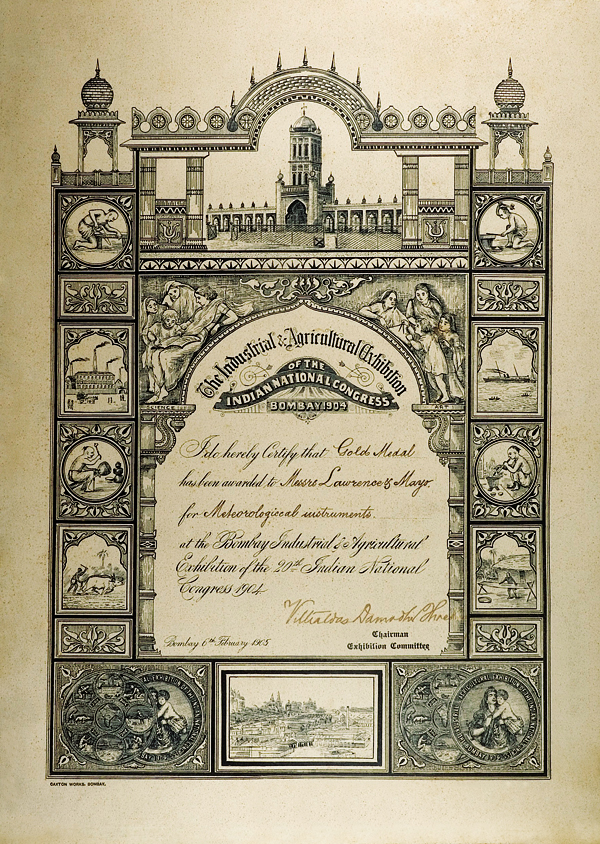 The Industrial & Agricultural Exhibition
OF THE
INDIAN NATIONAL CONGRESS
BOMBAY 1904
SCIENCE
ART
I do hereby Certify that Gold Medal
has been awarded to Messrs Lawrence & Mayo.
for Meteorologiccal instruments.
at the Bombay Industrial & Agricultural
Exhibition of the 20th Indian National
Congress 1904
Vithaldas Damodher
Bombay 6th February 1905
Chairman
Exhibition Committee
CAXTON WORKS, BOMBAY.